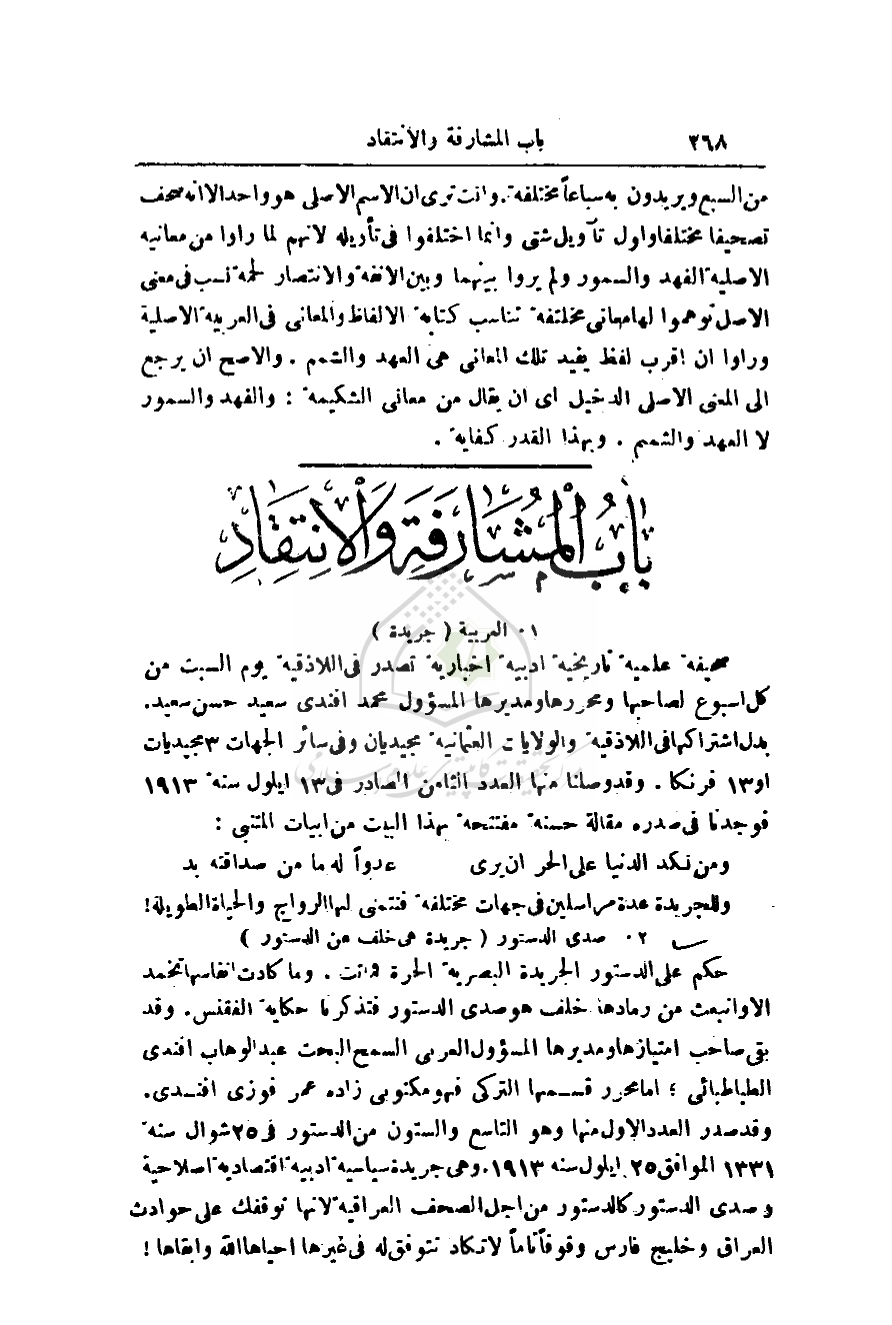 ٣٦٨ باب المشارفة والانتقاد
من السبع ويريدون به سباعاً مختلفة . وانت ترى ان الاسم الاصلى هو واحد الا انه صحف
تصحيفا مختلفا واول تآويل شتى وانما اختلفوا فى تأويله لانهم لما راوا من معانيه
الاصلية الفهد والسمور ولم يروا بينهما وبين الانفة والانتصار لحمة نسب فى معنى
الاصل توهموا لها معانى مختلفة تناسب كتابة الالفاظ والمعانى فى العربية الاصلية
وراوا ان اقرب لفظ يفيد تلك المعانى هى العهد والشمم . والاصح ان يرجع
الى المعنى الاصلى الدخيل اى ان يقال من معانى الشكيمة : والفهد والسمور
لا العهد والشمم . وبهذا القدر كفاية .
بَابُ الْمُشَارَفَةِ وَالْاِنتِقَادِ
٠١ العربية ( جريدة )
صحيفة علمية تاريخية ادبية اخبارية تصدر فى اللاذقية يوم السبت من
كل اسبوع لصاحبها ومحررها ومديرها المسؤول محمد افندى سعيد حسن سعيد.
بدل اشتراكها فى اللاذقية والولايات العثمانية مجيديان وفى سائر الجهات ٣ مجيديات
او ١٣ فرنكا . وقد وصلنا منها العدد الثامن الصادر فى ١٣ ايلول سنة ١٩١٣
فوجدنا فى صدره مقالة حسنة مفتتحة بهذا البيت من ابيات المتنبى :
ومن نكد الدنيا على الحر ان يرى عدواً له ما من صداقته بد
وللجريدة عدة مراسلين فى جهات مختلفة فنتمنى لها الرواج والحياة الطويلة!
٠٢ صدى الدستور ( جريدة هى خلف عن الدستور )
حكم على الدستور الجريدة البصرية الحرة فماتت . وما كادت انفاسها تخمد
الا وانبعث من رمادها خلف هو صدى الدستور فتذكرنا حكاية الفقنس. وقد
بقى صاحب امتيازها ومديرها المسؤول العربى السمح البحت عبد الوهاب افندى
الطباطبائى ؛ اما محرر قسمها التركى فهو مكتوبى زاده عمر فوزى افندى.
وقد صدر العدد الاول منها وهو التاسع والستون من الدستور فى ٢٥ شوال سنة
١٣٣١ الموافق ٢٥ ايلول سنه ١٩١٣. وهى جريدة سياسية ادبية اقتصادية اصلاحية
وصدى الدستور كالدستور من اجل الصحف العراقية لانها توقفك على حوادث
العراق وخليج فارس وقوفاً تاماً لا تكاد تتوفق له فى غيرها احياها الله وابقاها !